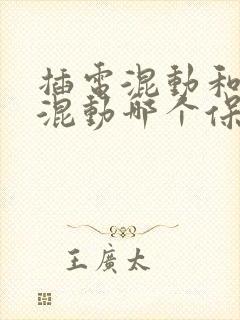 插電混動和
混動哪个保
王廣太